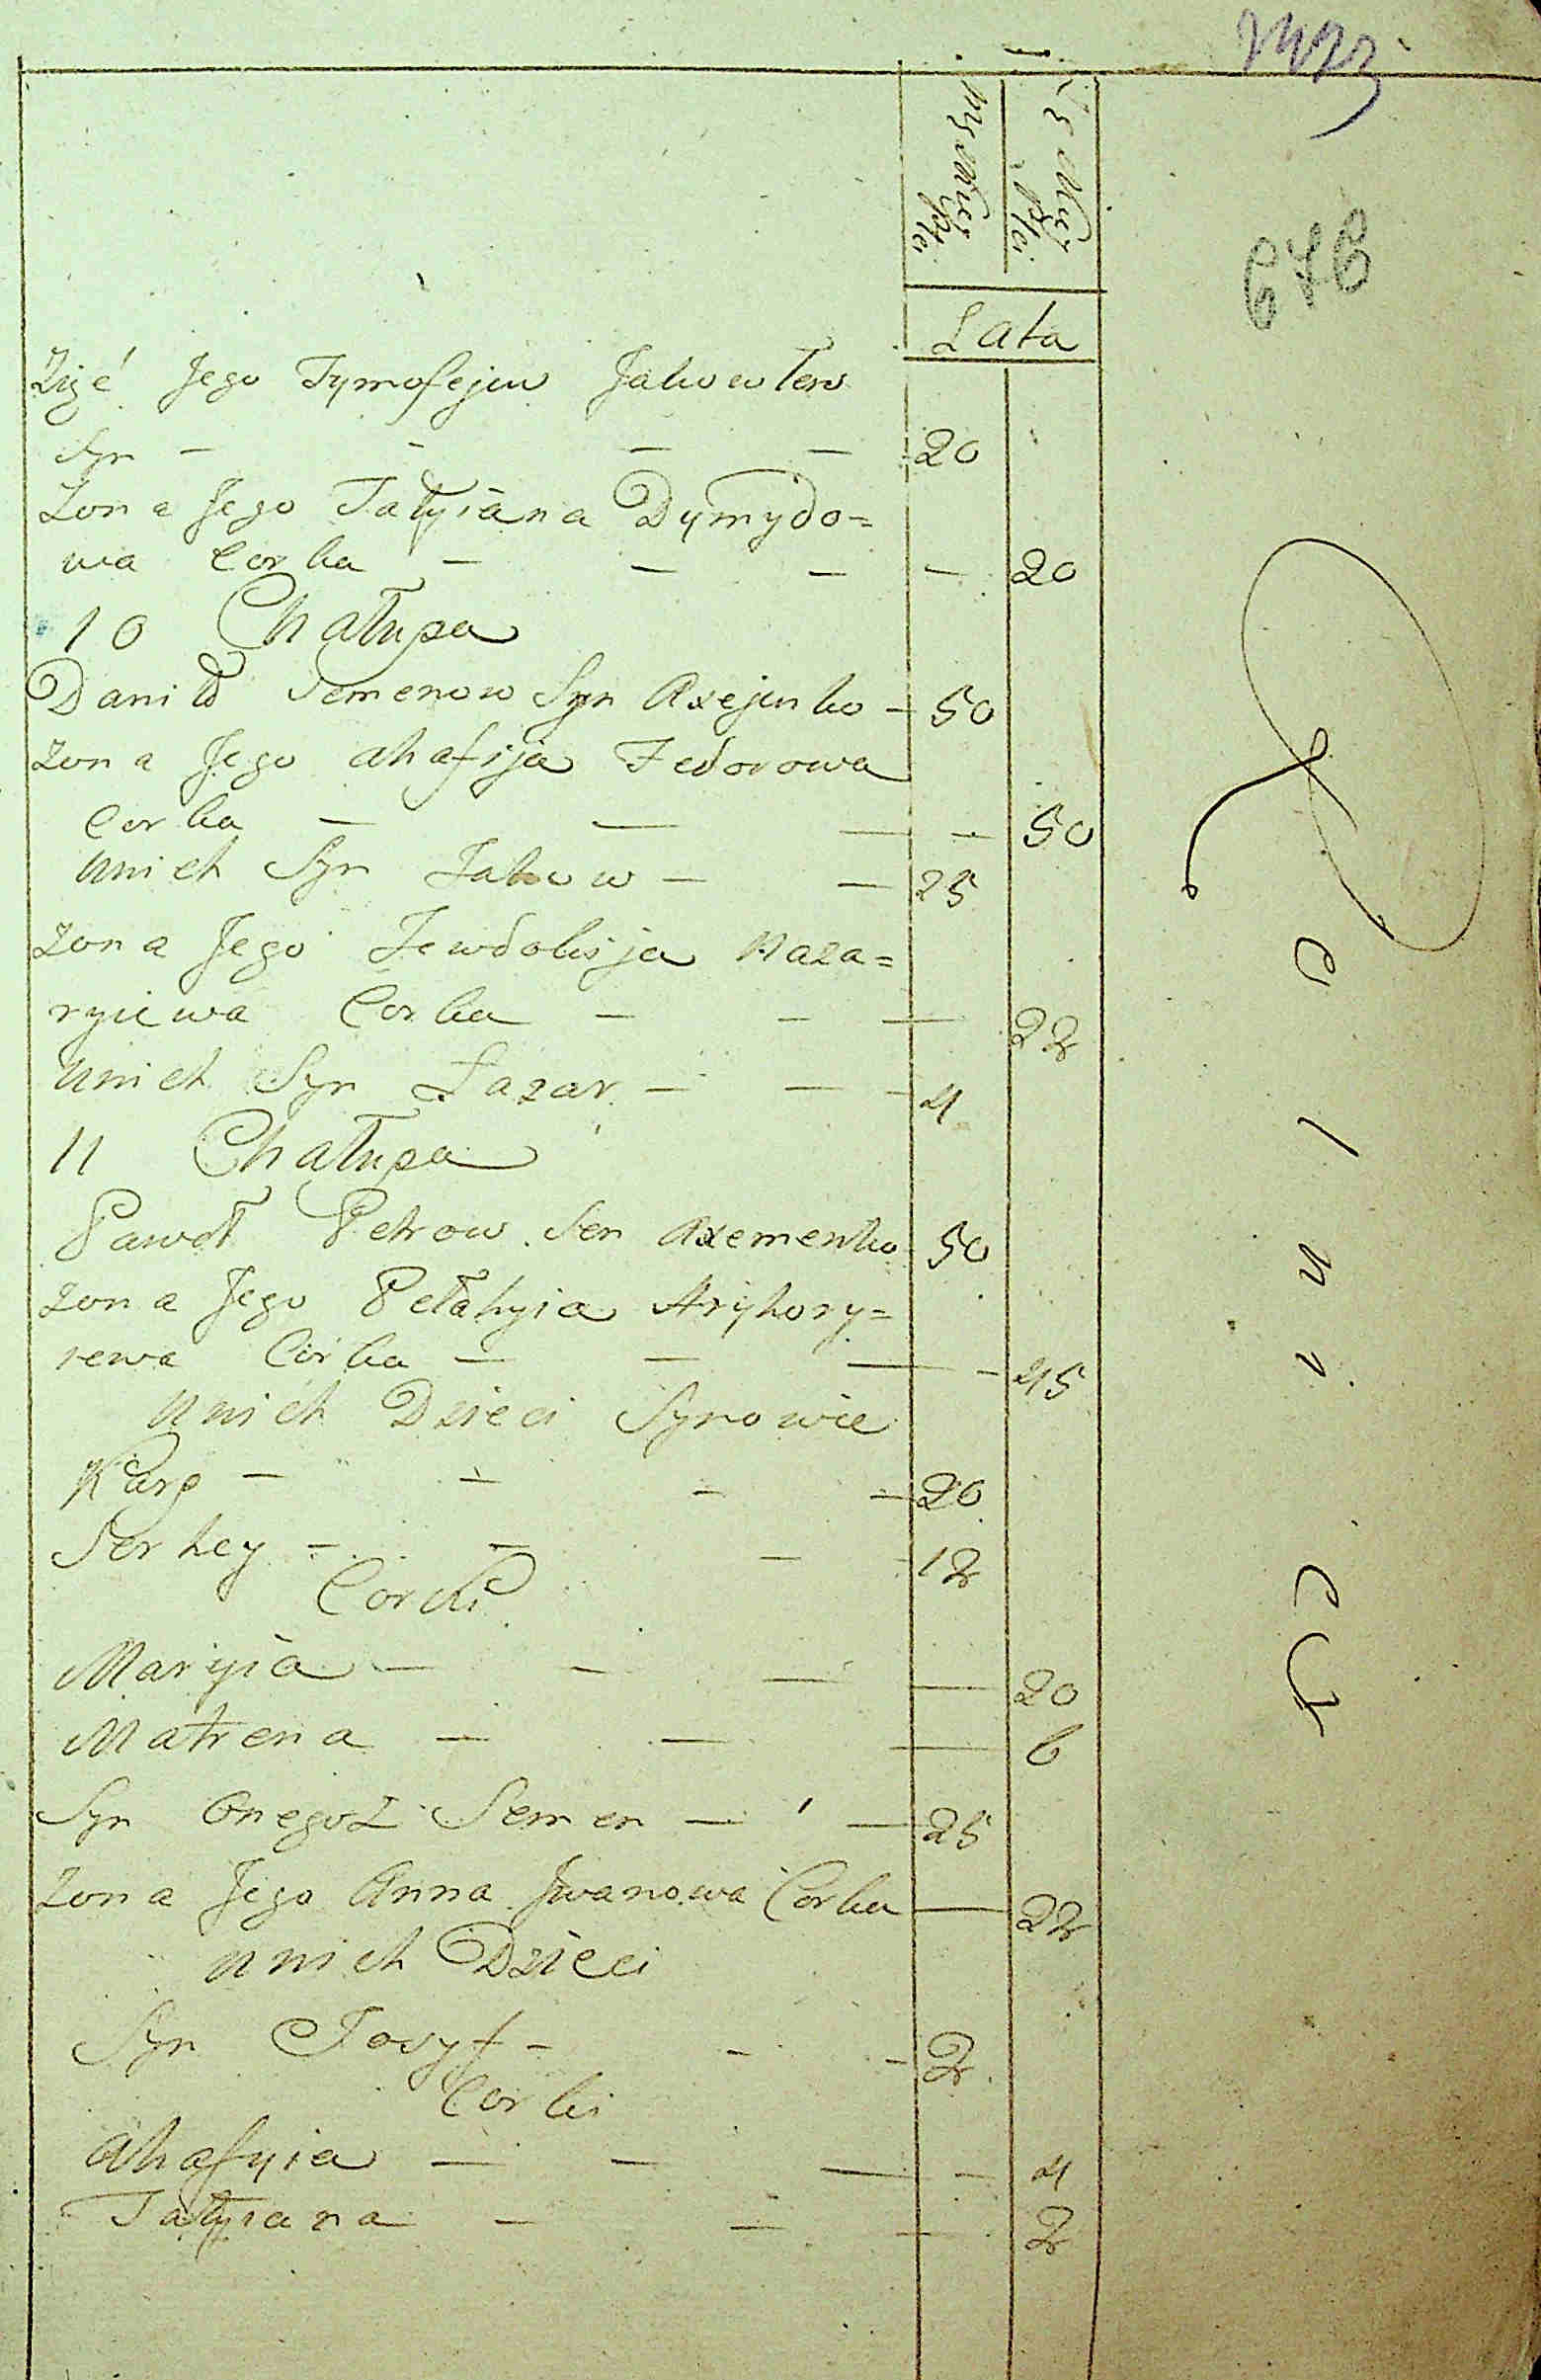 676
Lata
Zięć Jego Tymofejew Jakowlew
Syn — — — — 20
Zona Jego Tatyiana Dymydo=
wa Corka — — — — 20
10 Chałupa
Daniło Semenow Syn Axejenko — 50
Zona Jego Ahafija Fedorowa
Corka — — — — 50
unich Syn Jakow — — 25
Zona Jego Jewdokija Naza=
ryiewa Corka — — — 22
unich Syn Łazar — — — 4
11 Chałupa
Paweł Petrow Sen Axemenko 50
Zona Jego Pełahyia Hryhory=
iewa Corka — — — — 45
unich Dzieci Synowie
Karp — — — — 20
Serhey — — — — 12
Corki
Maryia — — — — 20
Matrena — — — 6
Syn Onegoż Semen — — 25
Zona Jego Anna Jwanowa Corka — 22
unich Dzieci
Syn Josyf — — — 2
Corki
Ahafyia — — — — 4
Tatyiana — — — 2